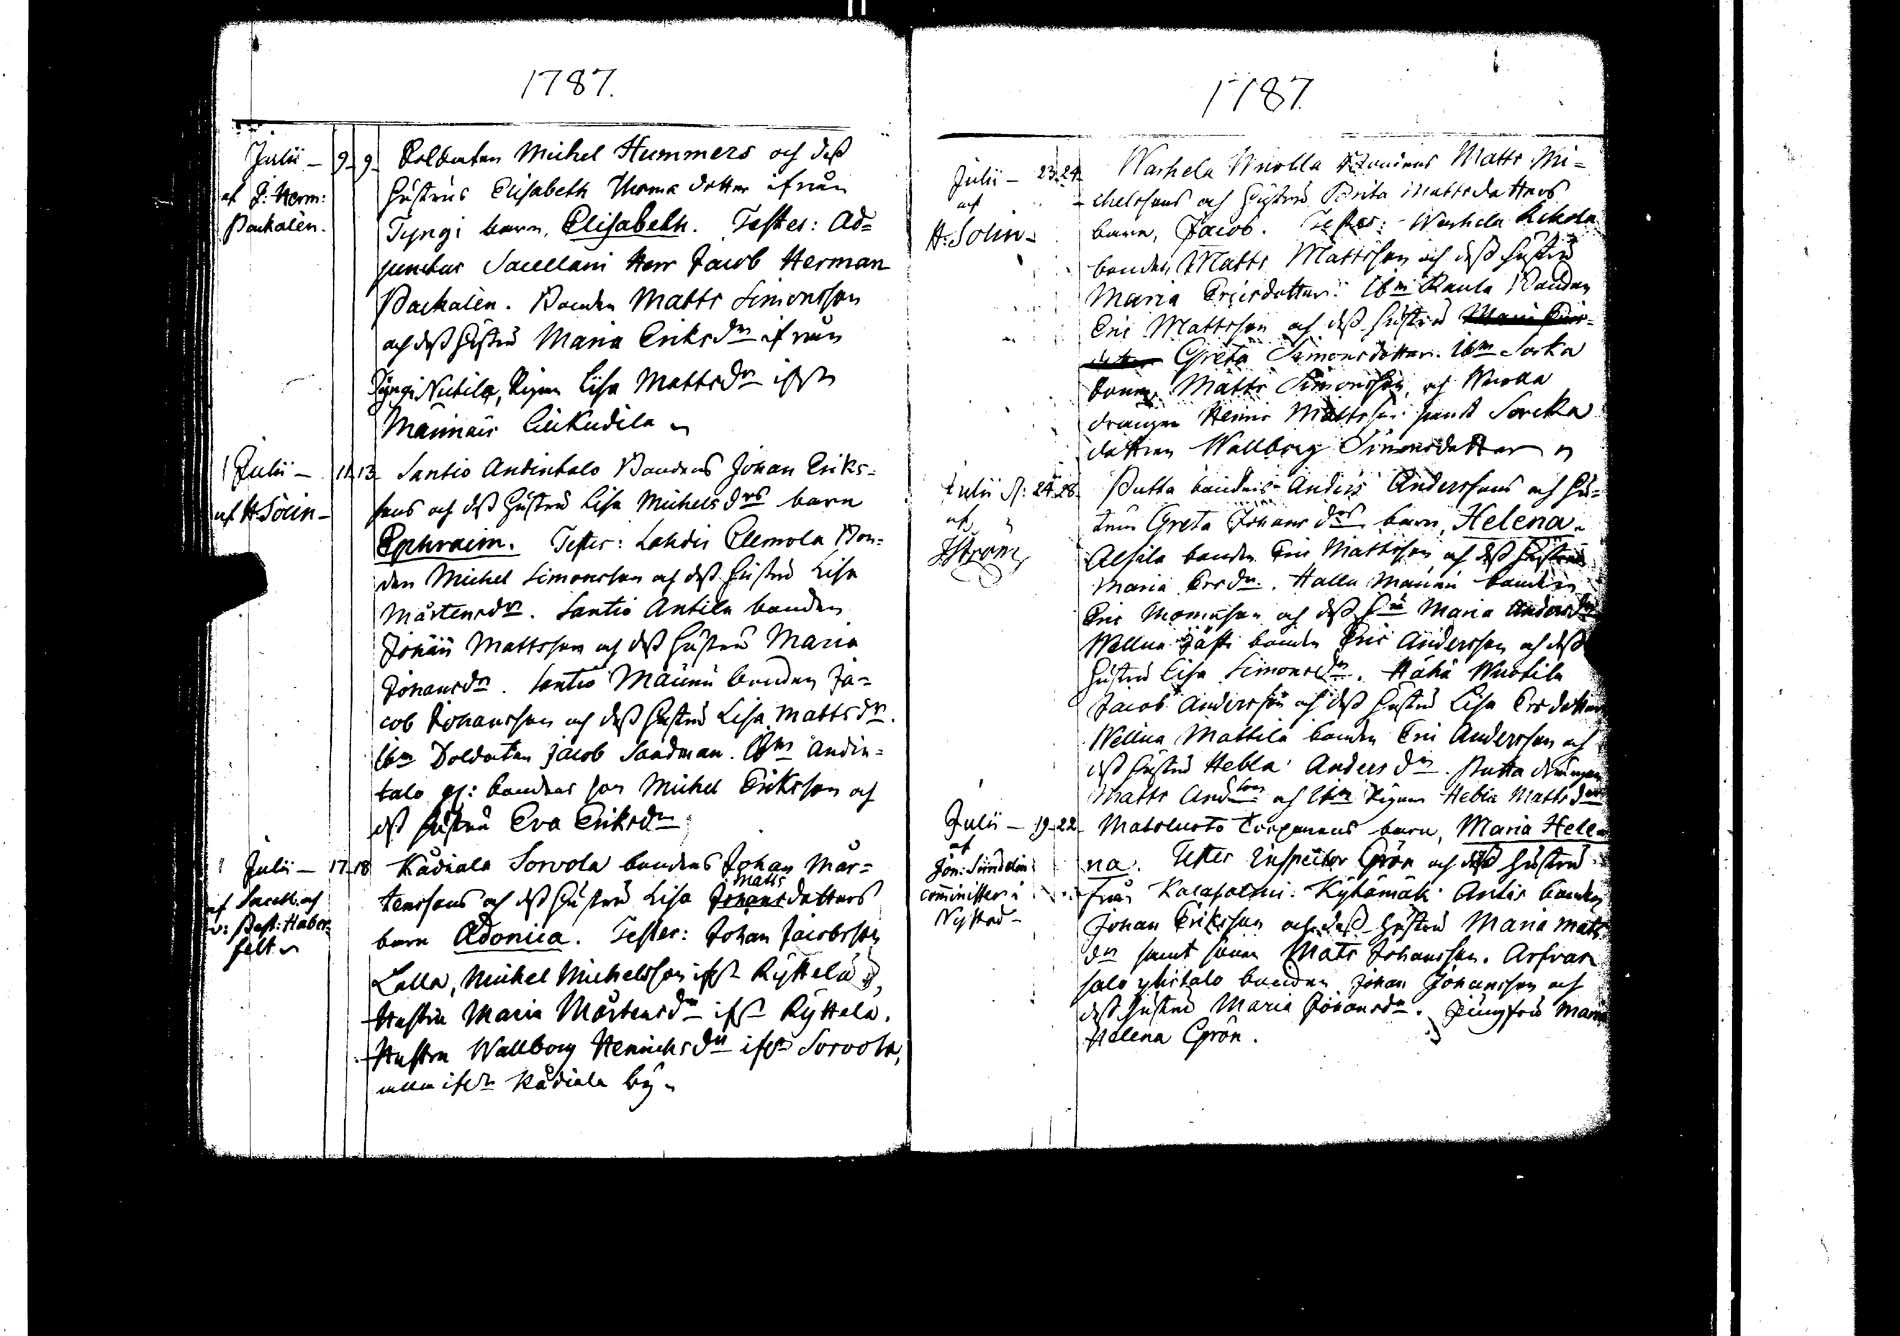 1787.
Julii - 9-9 Soldaten Michel Hummers och dess
af J: Herm: hustrus Elisabeth Thomædotter ifrån
Packalén. Tyngi barn, Elisabeth. Testes: Ad=
junctus Sacellani Herr Jacob Herman
Packalèn. Bonden Matts Simonsson
och dess hustru Maria Eriksdr ifrån
Tyngi Nickila, Pigan Lisa Mattsdr
Männäis
Julii - 11-13 Santio Andintalo Bondens Johan Eriks=
af H: Solin - sons och dess hustrus Lisa Michelsdrs barn
Ephraim. Testes: Lahdis Clemola Bon=
den Michel Simonsson och dess hustru Lisa
Mårtensdr. Santio Antila bonden
Johan Mattsson och dess hustru Maria
Johansdr. Santio Männü bonden Ja=
cob Johansson och dess hustru Lisa Mattsdr.
Ibm Soldaten Jacob Sandman. Ibm Andin=
talo bondens son Michel Eriksson och
dess hustru Eva Eriksdr
Julii - 17-18 Kådiala Sorvola bondens Johan Mår=
af Sacell. och tenssons och dess hustrus Lisa Johans Matts dotters
v: Past: Haber= barn Adonica. Testes: Johan Jacobsson
felt Lalla, Michel Michelsson Ryttelä,
Hustru Maria Mårtensdr Ryttelä.
Hustru Wallborg Henrichsdr Sorvola,
alla Kådiala by
1787
Julii - 23-24 Warhela Wuolla Bondens Matts Mi=
af chelssons och hustrus Brita Mattsdotters
H: Solin - barn, Jacob. Testes: Warhela Rikola
bonden Matts Mattsson och dess hustru
Maria Ersdotter. Ibm Raula Bonden
Eric Mattsson och dess hustru Maria Ers=
dotter Greta Simonsdotter. Ibm Sorka
bonden Matts Simonsson, och Wuolla
drängen Henric Mattsson samt Sorcka
dottren Wallborg Simonsdotter
Julii 24-26 Putta bondens Anders Anderssons och hu=
af strus Greta Johansdrs barn, Helena.
JStröm Alhila bonden Eric Mattsson och dess hustru
Maria Ersdr. Hallu Männü bonden
Eric Thomasson och dess Hu Maria Andersdr
Wellua Jäfti bonden Eric Andersson och dess
hustru Lisa Simonsdr. Hähä Wuotila
Jacob Andersson och dess hustru Lisa Ersdotter
Wellua Mattila bonden Eric Andersson och
dess hustru Hebla Andersdr. Putta drängen
Matts Andsson och Ibm Pigan Hebla Mattsdr
Julii - 19-22 Matoluoto Torparens barn, Maria Hele
af na. Testes Inspector Grön och dess hustru
Jon: Sundelin från Kalapolni. Kytämäki Antis bonden
comminister i Johan Eriksson och dess hustru Maria Mats
Nystad - dr samt sonen Mats Johansson. Arfvas
salo ylistalo bonden Johan Johansson och
dess hustru Maria Johansdr. Jungfru Maria
Helena Grön.